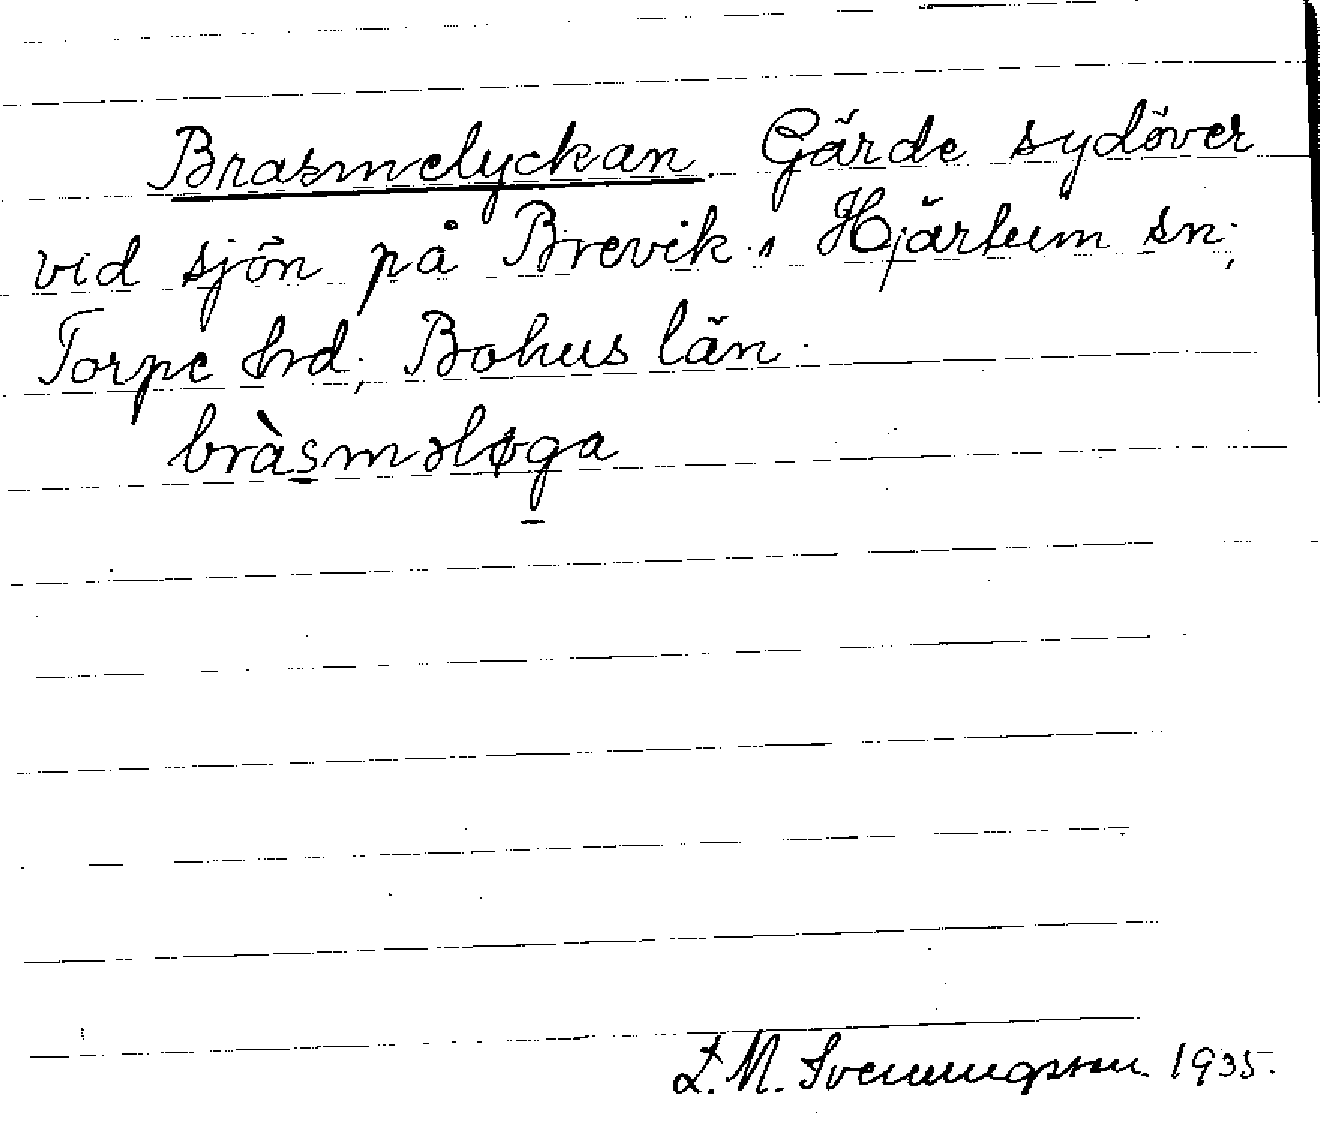 Brasmelyckan. Gärde sydöver
vid sjön på Brevik., Hjärtum sn;
Torpe hrd; Bohus län.
bràsməløga
L.M. Svenungsson. 1935.